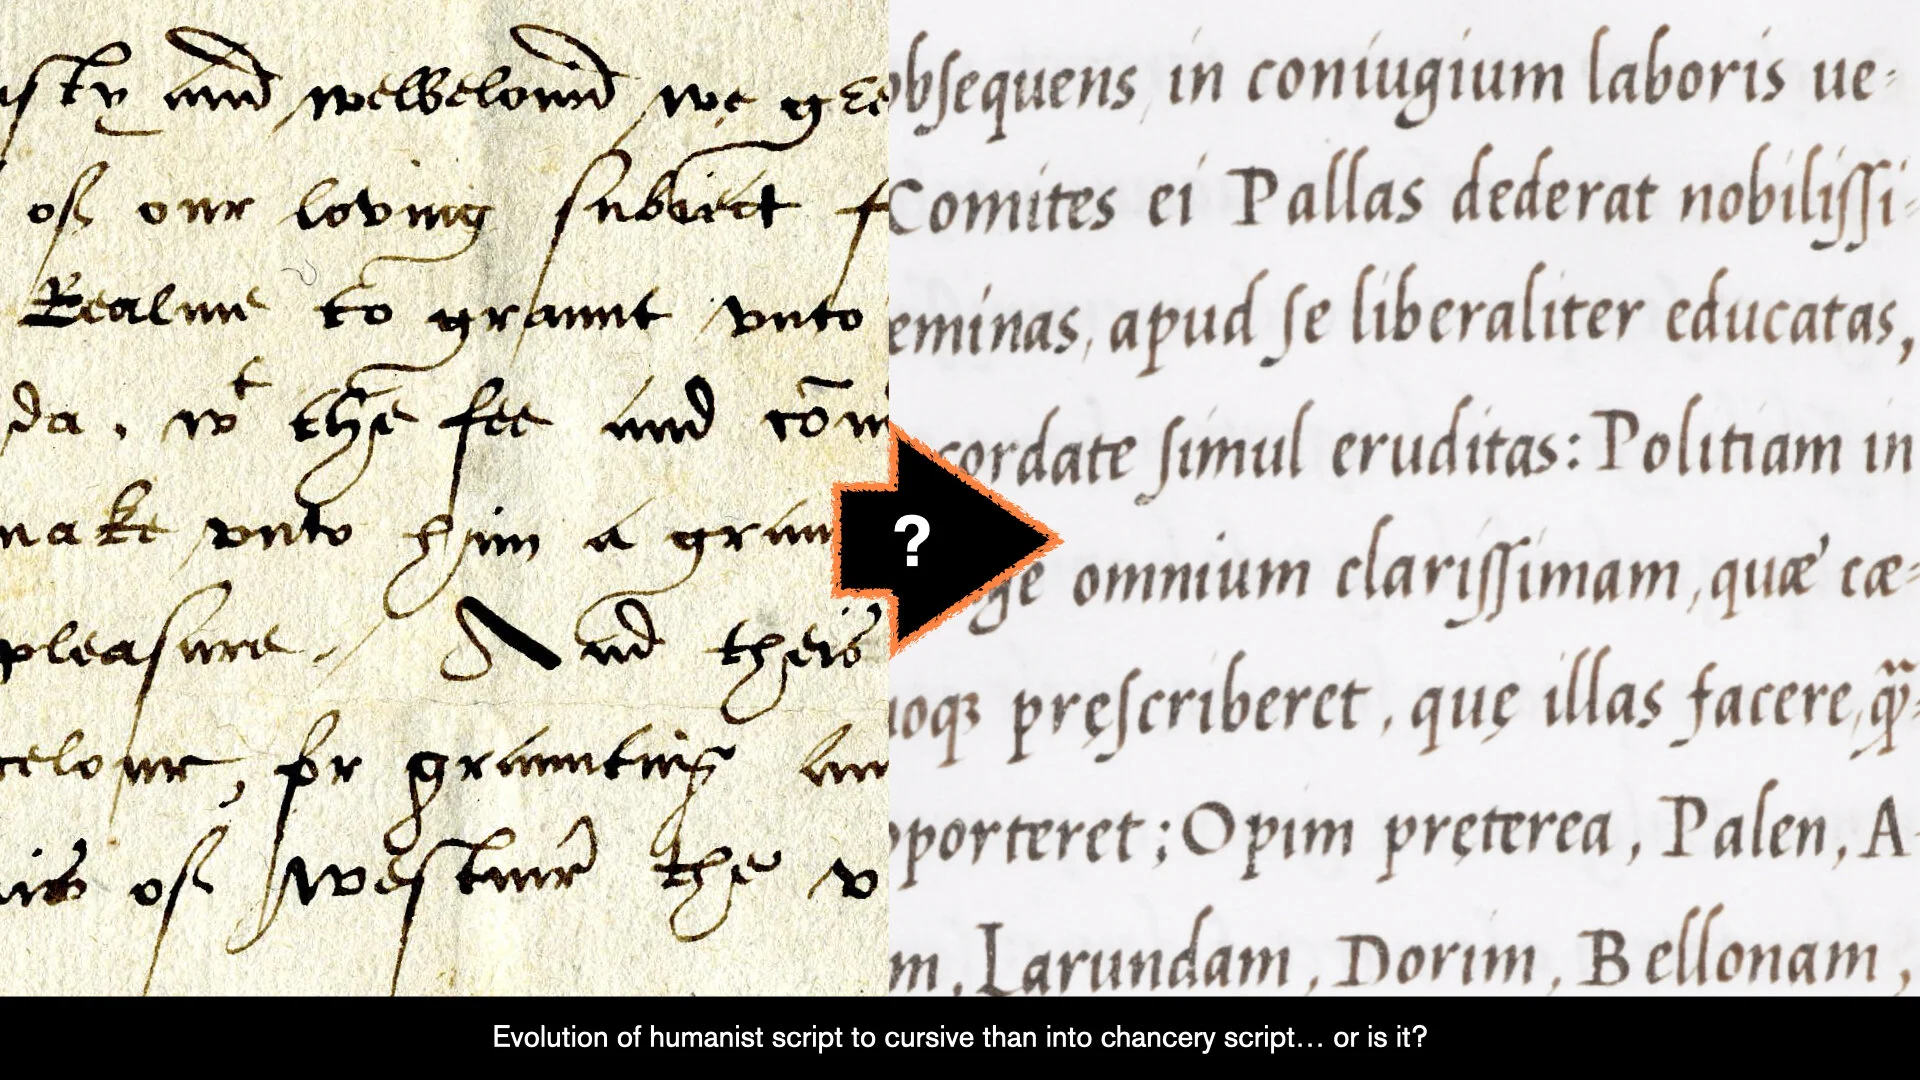 sty and welbelovid we gre
of our loving subiect f
Realme to graunt vnto
da. wt the fee and com̄
make vnto hym a graun
pleasure. And theis
celour, for graunting an
of Westmr the v
obſequens in coniugium laboris ue-
Comites ei Pallas dederat nobiliſſi-
eminas, apud ſe liberaliter educatas,
cordate ſimul eruditas: Politiam in
?
ge omnium clariſſimam, quæ cæ-
uoqꝫ pręſcriberet, quę illas facere,
pporteret; Opim pręterea, Palen, A-
m, Larundam, Dorim, Bellonam,
Evolution of humanist script to cursive than into chancery script… or is it?